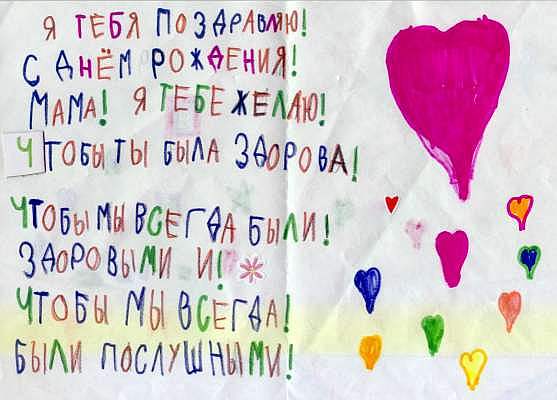 Я ТЕБЯ ПОЗДРАВЛЯЮ!
С ДНЁМ РОЖДЕНИЯ!
МАМА! Я ТЕБЕ ЖЕЛАЮ!
ЧТОБЫ ТЫ БЫЛА ЗДОРОВА!
ЧТОБЫ МЫ ВСЕГДА БЫЛИ!
ЗДОРОВЫМИ И!
ЧТОБЫ МЫ ВСЁГДА!
БЫЛИ ПОСЛУШНЫМИ!